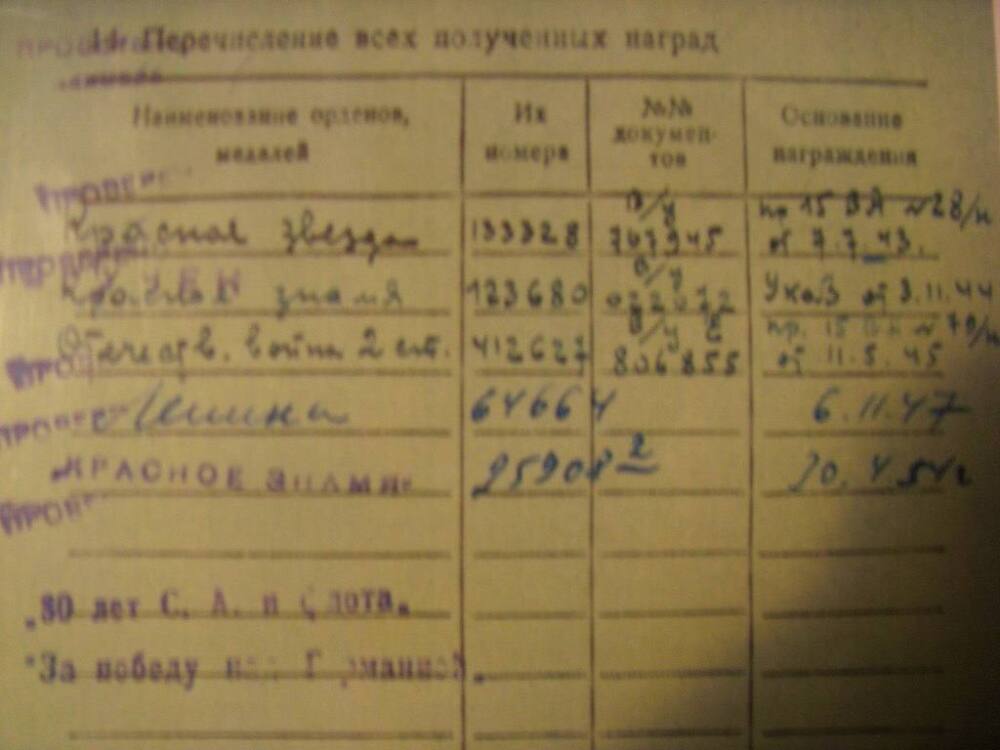 14. Перечисление всех полученных наград
Наименование орденов, медалей
Их номера
№№ документов
Основание награждения
ПРОВЕРЕН
Красная звезда 133328 в/у 767945 пр 15 ВА №28/н от 7.7.43.
Красное знамя 123680 в/у Указ от 3.11.44
Отечеств. война 2 ст. 412627 в/у Е 806855 пр. 15 ВА № 70/н от 11.5.45
Ленина 64664 6.11.47
„КРАСНОЕ ЗНАМЯ“ 30.4.54г
„30 лет С. А. и флота„
"За победу над Германией„